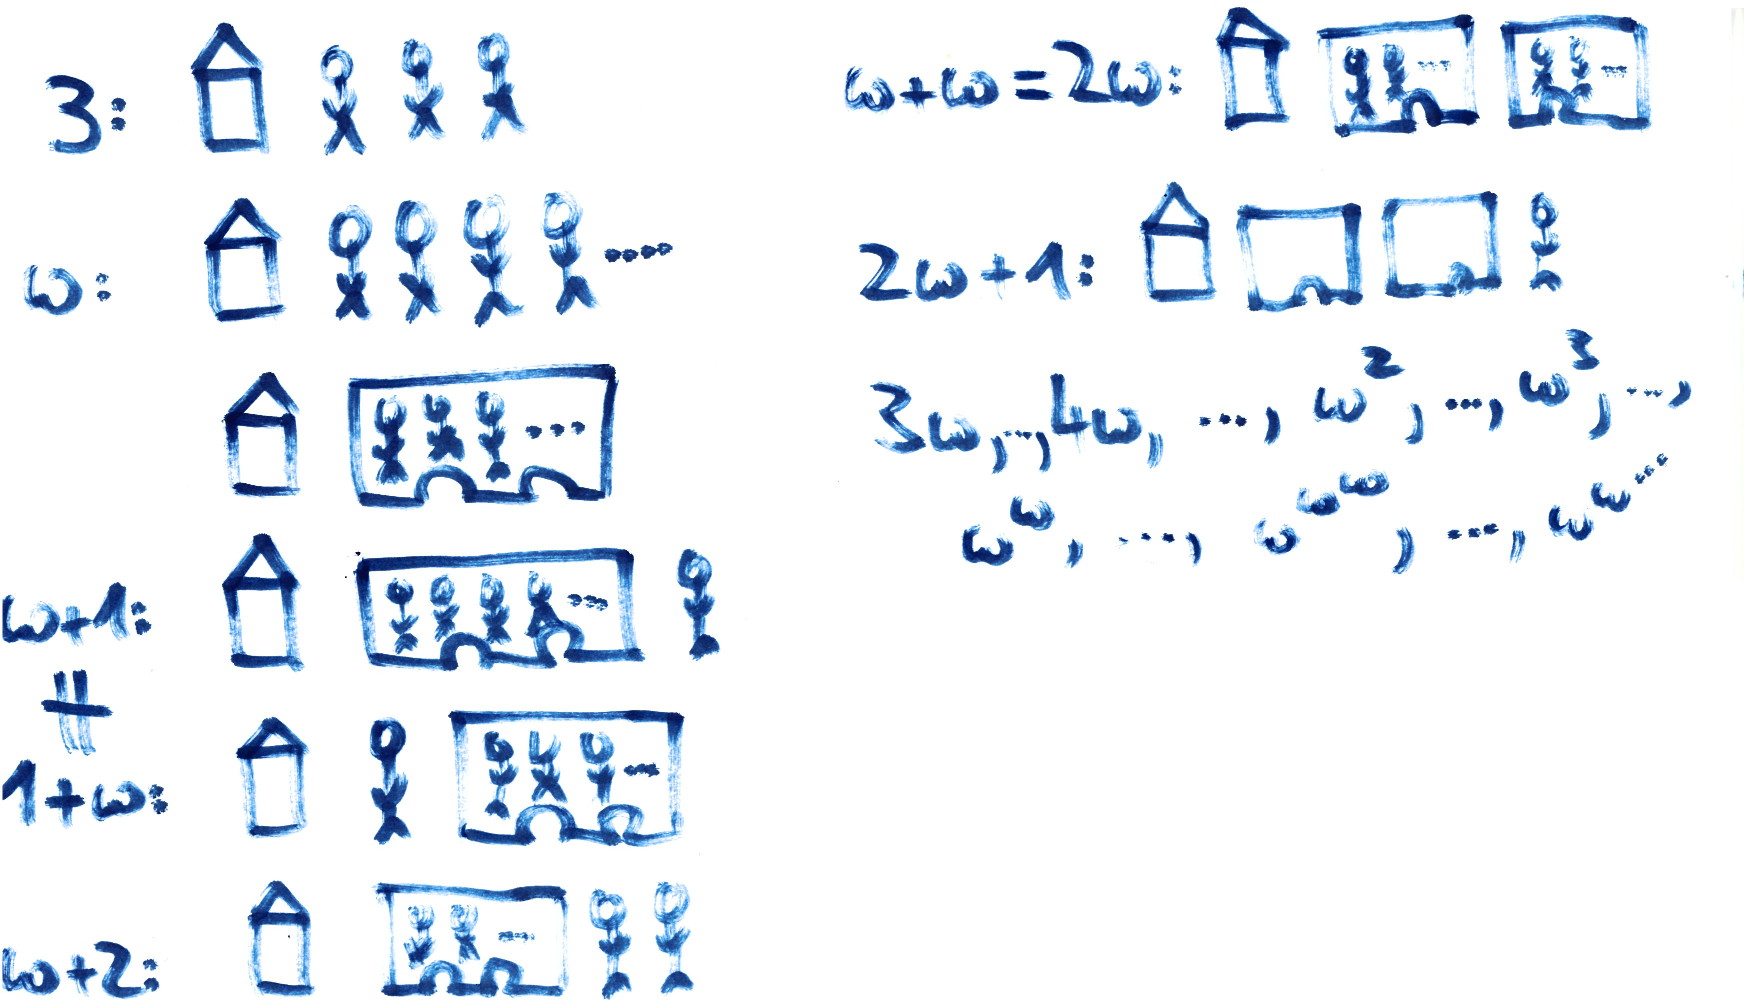 3:
ω: ....
...
ω+1: ...
≠
1+ω: ...
ω+2: ...
ω+ω=2ω: ... ...
2ω+1:
3ω,...,4ω, ..., ω², ..., ω³, ...,
ω^ω, ..., ω^ω^ω, ..., ω^ω^...